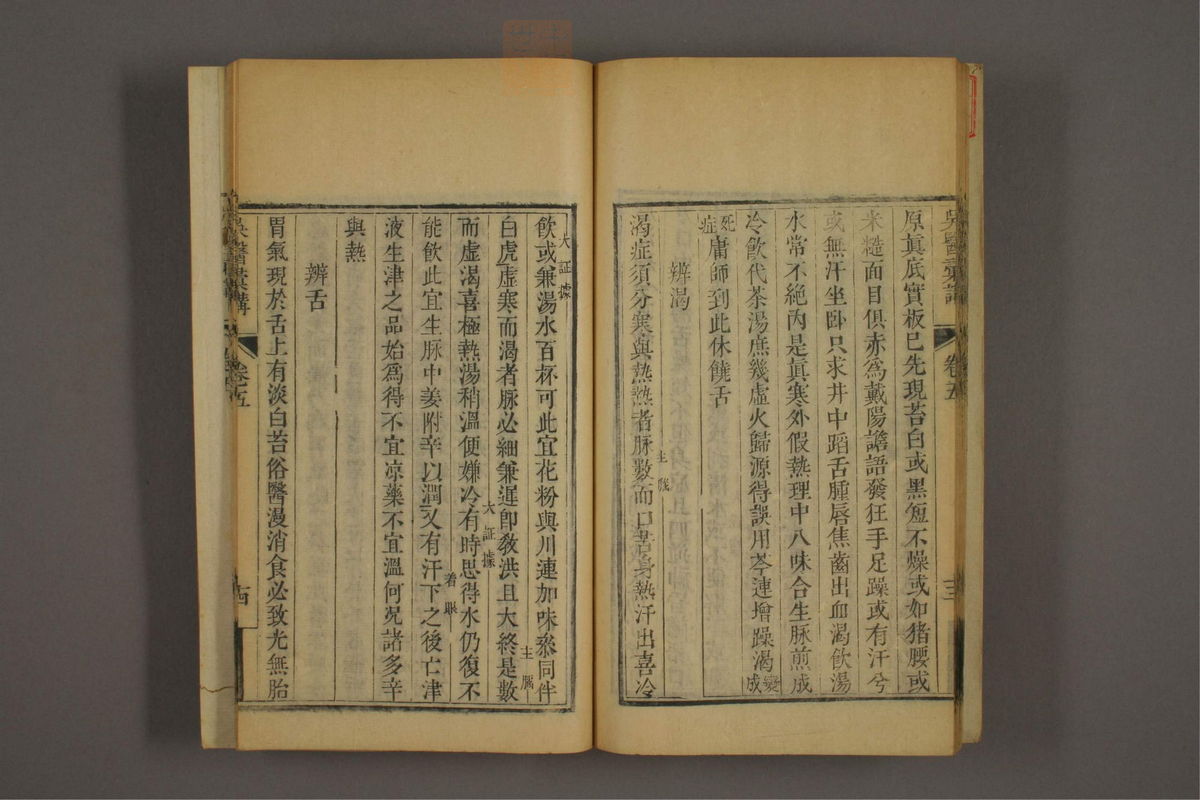 吳醫彙講
卷五
三
原眞底實板巳先現苔白或黑短不燥或如猪腰或
米糙面目俱赤爲戴陽譫語發狂手足躁或有汗兮
或無汗坐卧只求井中蹈舌腫唇焦齒出血渴飲湯
水常不絶内是眞寒外假熱理中八味合生脉煎成
冷飲代茶湯庶幾虛火歸源得誤用芩連增躁渴變成
死症庸師到此休饒舌
辨渴
渴症須分寒與熱熱者脉數而口苦身熱汗出喜冷
主腦
飲或兼湯水百杯可此宜花粉與川連加味叅同伴
大証據
白虎虛寒而渴者脉必細兼遲即敎洪且大終是數
主腦
而虛渴喜極熱湯稍溫便嫌冷有時思得水仍復不
大証據
能飲此宜生脉中姜附辛以潤又有汗下之後亡津
着眼
液生津之品始爲得不宜凉藥不宜溫何况諸多辛
與熱
辨舌
胃氣現於舌上有淡白苔俗醫漫消食必致光無胎
吳醫彙講
卷五
四